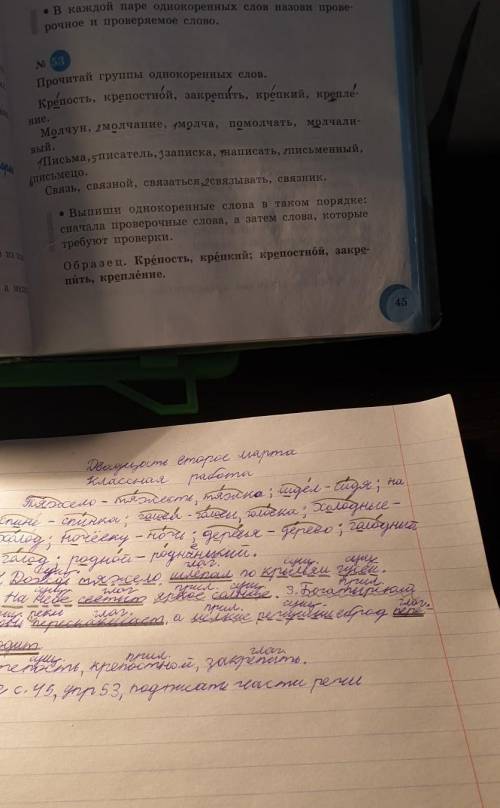 • В каждой паре однокоренных слов назови прове-
рочное и проверяемое слово.
№ 53
Прочитай группы однокоренных слов.
Крепость, крепостной, закрепить, крепкий, крепле-
ние.
Молчун, молчание, молча, помолчать, молчали-
вый.
Письма, писатель, записка, написать, письменный,
письмецо.
Связь, связной, связаться, связывать, связник.
• Выпиши однокоренные слова в таком порядке:
сначала проверочные слова, а затем слова, которые
требуют проверки.
Образец. Кре́пость, кре́пкий; крепостно́й, закре-
пи́ть, крепле́ние.
45
Двадцать второе марта
Классная работа
Тяжело - тяжесть, тяжко; сидел - сидя; на
спине - спинка; голосок; холодные -
холод; ночёвку - ночь; деревья - дерево; голодный
голод; родной - родненький.
сущ. глаг. сущ. сущ.
Дождь тяжело шлёпал по крыльям гусей.
сущ. глаг. прил. сущ. прил.
На небе светило яркое солнце. 3. Богатырский
глаг. прил. сущ. глаг.
перескакивает, а
сущ. прил. глаг.
крепость, крепостной, закрепить.
с. 45, упр 53, подписать части речи